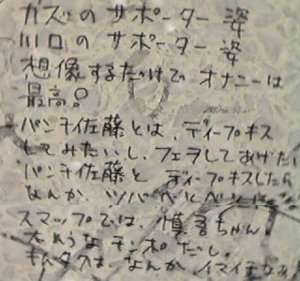 カズのサポーター姿
川口のサポーター姿
想像するだけでオナニーは
最高。
パンチ佐藤とは、ディープキス
もてみたいし、フェラしてあげたい
パンチ佐藤とディープキスしたら
なんか、ツバベトベト
スマップでは、慎吾ちゃん。
チンポだし。
キムタクは、なんか、イマイチなの